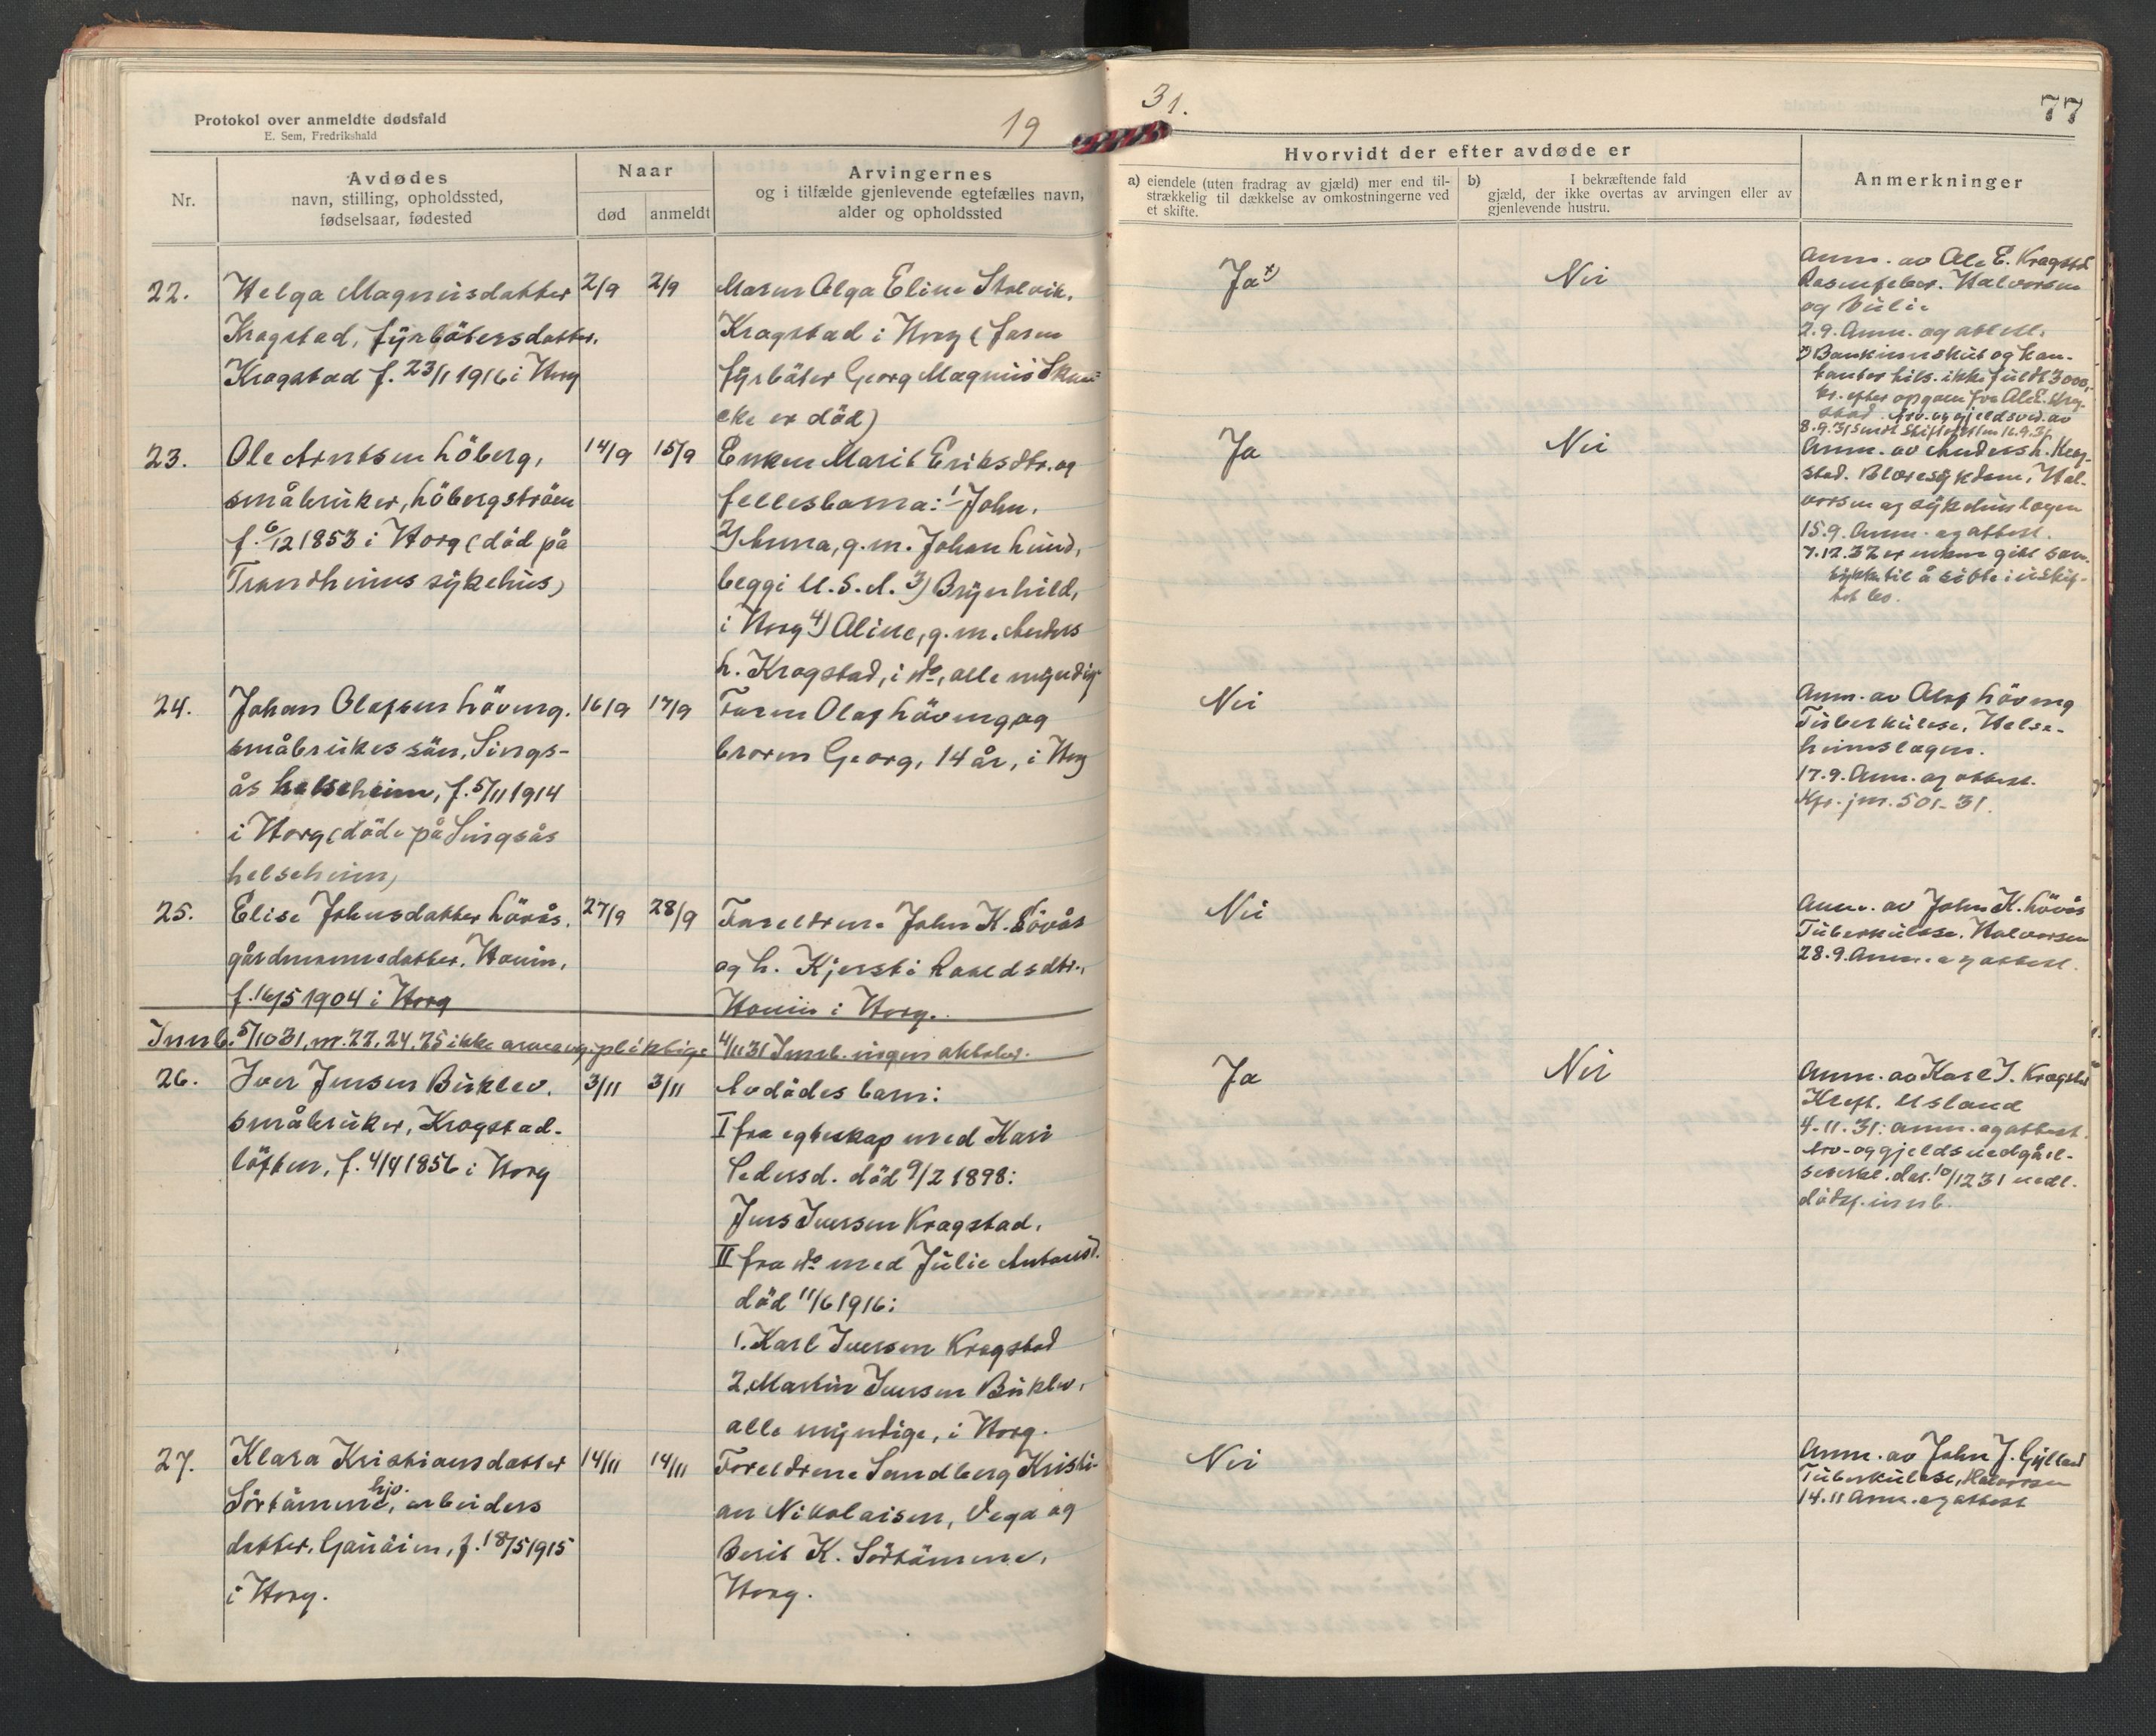 Protokol over anmeldte dødsfald
E. Sem, Fredrikshald
19
31.
77
Nr.
Avdødes
navn, stilling, opholdssted,
fødselsaar, fødested
Naar
død
anmeldt
Arvingernes
og i tilfælde gjenlevende egtefælles navn,
alder og opholdssted
Hvorvidt der efter avdøde er
a) eiendele (uten fradrag av gjæld) mer end til-
strækkelig til dækkelse av omkostningerne ved
et skifte.
b) I bekræftende fald
gjæld, der ikke overtas av arvingen eller av
gjenlevende hustru.
Anmerkninger
22.
Helga Magnusdatter
Krogstad, fyrbötersdatter.
Krogstad f. 23/1 1916 i Horg
2/9
2/9
Moren Olga Eline Stolvik,
Krogstad i Horg (faren
fyrböter Georg Magnus
eke er död)
Ja x)
Nei
Anm. av Ole E. Kragstad
Halvorsen
og Bulie
2.9. Anm. og attest.
x) Bankinnskut og kon-
tanter tils. ikke fuldt 3000,-
kr. efter opgave fra Ole E. Krog-
stad. Arv. og gjeldsved. av
8.9.31 sendt Skifteretten 16.9.31
23.
Ole Arntsen Löberg,
småbruker, Löbergströen
f. 6/12 1853 i Horg (död på
Trondheims sykehus)
14/9
15/9
Enken Marit Eriksdtr. og
fellesbarna: 1/ John,
2) Anna, g.m. Johan Lund,
beggi U.S.A. 3) Brynhild,
i Horg 4) Oline, g.m. Anders
L. Krogstad, i do, alle myndig
Ja
Nei
Anm. av Anders L. Krog-
stad. Blæresykdom, Hal-
vorsen og sykehuslægen
15.9. Anm. og attest.
7.12.32 er enken gitt sam-
tykke til å sitte i uskif-
tet bo.
24.
Johan Olafsen Löveng.
småbrukes sön, Sings-
ås helseheim, f. 5/11 1914
i Horg (döde på Singsås
helseheim)
16/9
17/9
Faren Olaf Löveng og
broren Georg, 14 år, i Horg
Nei
Anm. av Olaf Löveng
Tuberkulose, Helse-
heimslægen.
17.9. Anm. og attest.
Kfr. jnr. 501-31.
25.
Elise Johnsdatter Lövås,
gårdmannsdatter, Hovin,
f. 16/5 1904 i Horg
27/9
28/9
Foreldrene John K. Lövås
og h. Kjersti Loveldsdtr.,
Hovin i Horg.
Nei
Anm. av John K. Lövås
Tuberkulose. Halvorsen
28.9. Anm. og attest.
Innb. 5/10 31, nr. 22, 24, 25 ikke arveavg.pliktige
4/11 31 Innb. ingen oktober.
26.
Iver Jensen Buklev.
småbruker, Krogstad-
löften, f. 4/4 1856 i Horg
3/11
3/11
Avdödes barn:
I fra egteskap med Kari
Pedersd. död 9/2 1898:
Jens Iversen Kragstad.
II fra do med Julie Antonsd.
död 11/6 1916:
1. Karl Iversen Krogstad
2. Martin Iversen Buklev,
alle myndige, i Horg.
Ja
Nei
Anm. av Karl I. Kragstad
Usland
4.11.31: Anm. og attest.
Arv- og gjeldsvedgåel-
seserkl. dat. 10/12 31 vedl.
dödsf. innb.
27.
Klara Kristiansdatter
Sörtömme, hjv. arbeiders
datter, Gauåien, f. 18/5 1915
i Horg.
14/11
14/11
Foreldrene Sandberg Kristi-
an Nikolaisen, Vega og
Berit K. Sörtömme,
Horg.
Nei
Anm. av John J. Gylland
Tuberkulose, Halvorsen
14.11 Anm. og attest